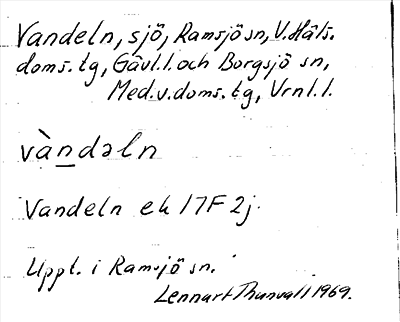 Vandeln, sjö, Ramsjö sn, V. Häls.
doms. tg, Gävl. l. och Borgsjö sn,
Med. v. doms. tg, Vrnl. l.
vàn̲dəln
Vandeln ek 17F 2j.
Uppt. i Ramsjö sn.
Lennart Thunvall 1969.